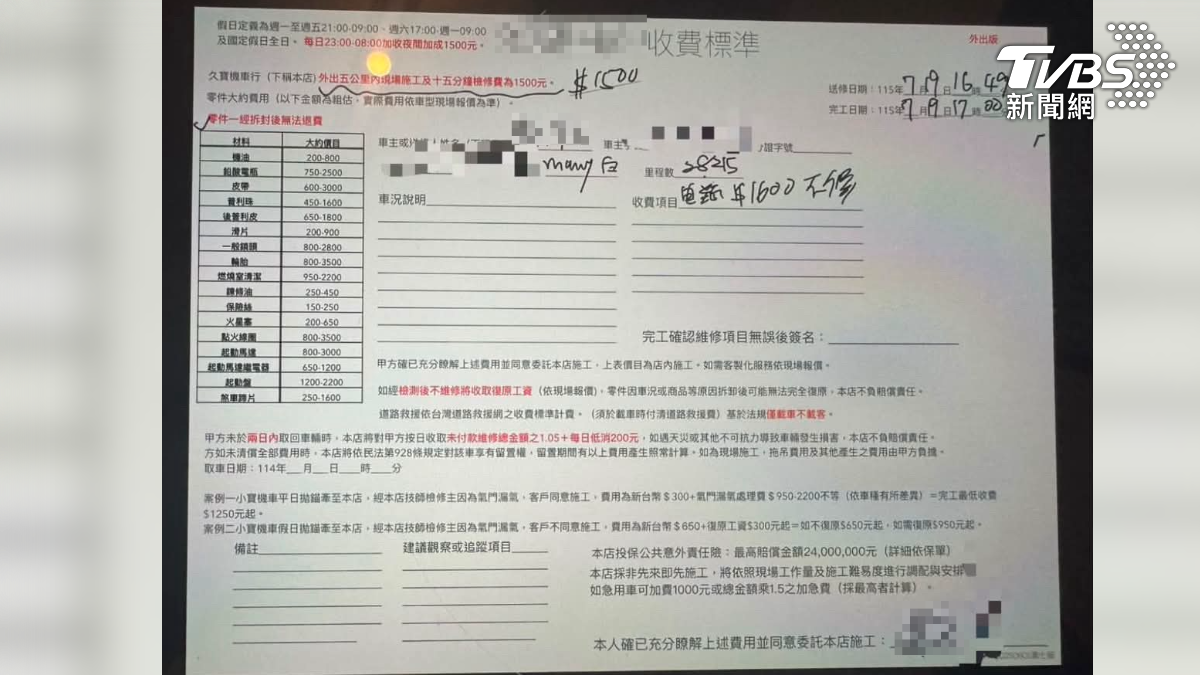 假日定義為週一至週五21:00-09:00、週六17:00-週一09:00
及國定假日全日。每日23:00-08:00加收夜間加成1500元。
收費標準
外出版
TVBS
新聞網
久寶機車行（下稱本店）外出五公里內現場施工及十五分鐘檢修費為1500元。
$1500
零件大約費用（以下金額為粗估，實際費用依車型現場報價為準）。
送修日期：115年7月9日16時49
完工日期：115年7月9日17時00
零件一經拆封後無法退費
材料 大約價目
機油 200-800
鉛酸電瓶 750-2500
皮帶 600-3000
普利珠 450-1600
後普利皮 650-1800
滑片 200-900
一般鏡頭 800-2800
輪胎 800-3500
燃燒室清潔 950-2200
250-450
保險絲 150-250
火星塞 200-650
點火線圈 800-3500
起動馬達 800-3000
起動馬達繼電器 650-1200
起動盤 1200-2200
煞車蹄片 250-1600
車主或
車主
證字號
many
里程數 28215
車況說明
收費項目 $1600 不修
完工確認維修項目無誤後簽名：
甲方確已充分瞭解上述費用並同意委託本店施工，上表價目為店內施工。如需客製化服務依現場報價。
如經檢測後不維修將收取復原工資（依現場報價），零件因車況或商品等原因拆卸後可能無法完全復原，本店不負賠償責任。
道路救援依台灣道路救援網之收費標準計費。（須於載車時付清道路救援費）基於法規僅載車不載客。
甲方未於兩日內取回車輛時，本店將對甲方按日收取未付款維修總金額之1.05＋每日低消200元，如遇天災或其他不可抗力導致車輛發生損害，本店不負賠償責任。
方如未清償全部費用時，本店將依民法第928條規定對該車享有留置權，留置期間有以上費用產生照常計算。如為現場施工，拖吊費用及其他產生之費用由甲方負擔。
取車日期：114年__月__日__時__分
案例一小寶機車平日拋錨牽至本店，經本店技師檢修主因為氣門漏氣，客戶同意施工，費用為新台幣＄300+氣門漏氣處理費＄950-2200不等（依車種有所差異）＝完工最低收費
$1250元起。
案例二小寶機車假日拋錨牽至本店，經本店技師檢修主因為氣門漏氣，客戶不同意施工，費用為新台幣＄650+復原工資$300元起＝如不復原$650元起，如需復原$950元起。
備註
建議觀察或追蹤項目
本店投保公共意外責任險：最高賠償金額24,000,000元（詳細依保單）
本店採非先來即先施工，將依照現場工作量及施工難易度進行調配與安排
如急用車可加費1000元或總金額乘1.5之加急費（採最高者計算）。
本人確已充分瞭解上述費用並同意委託本店施工：